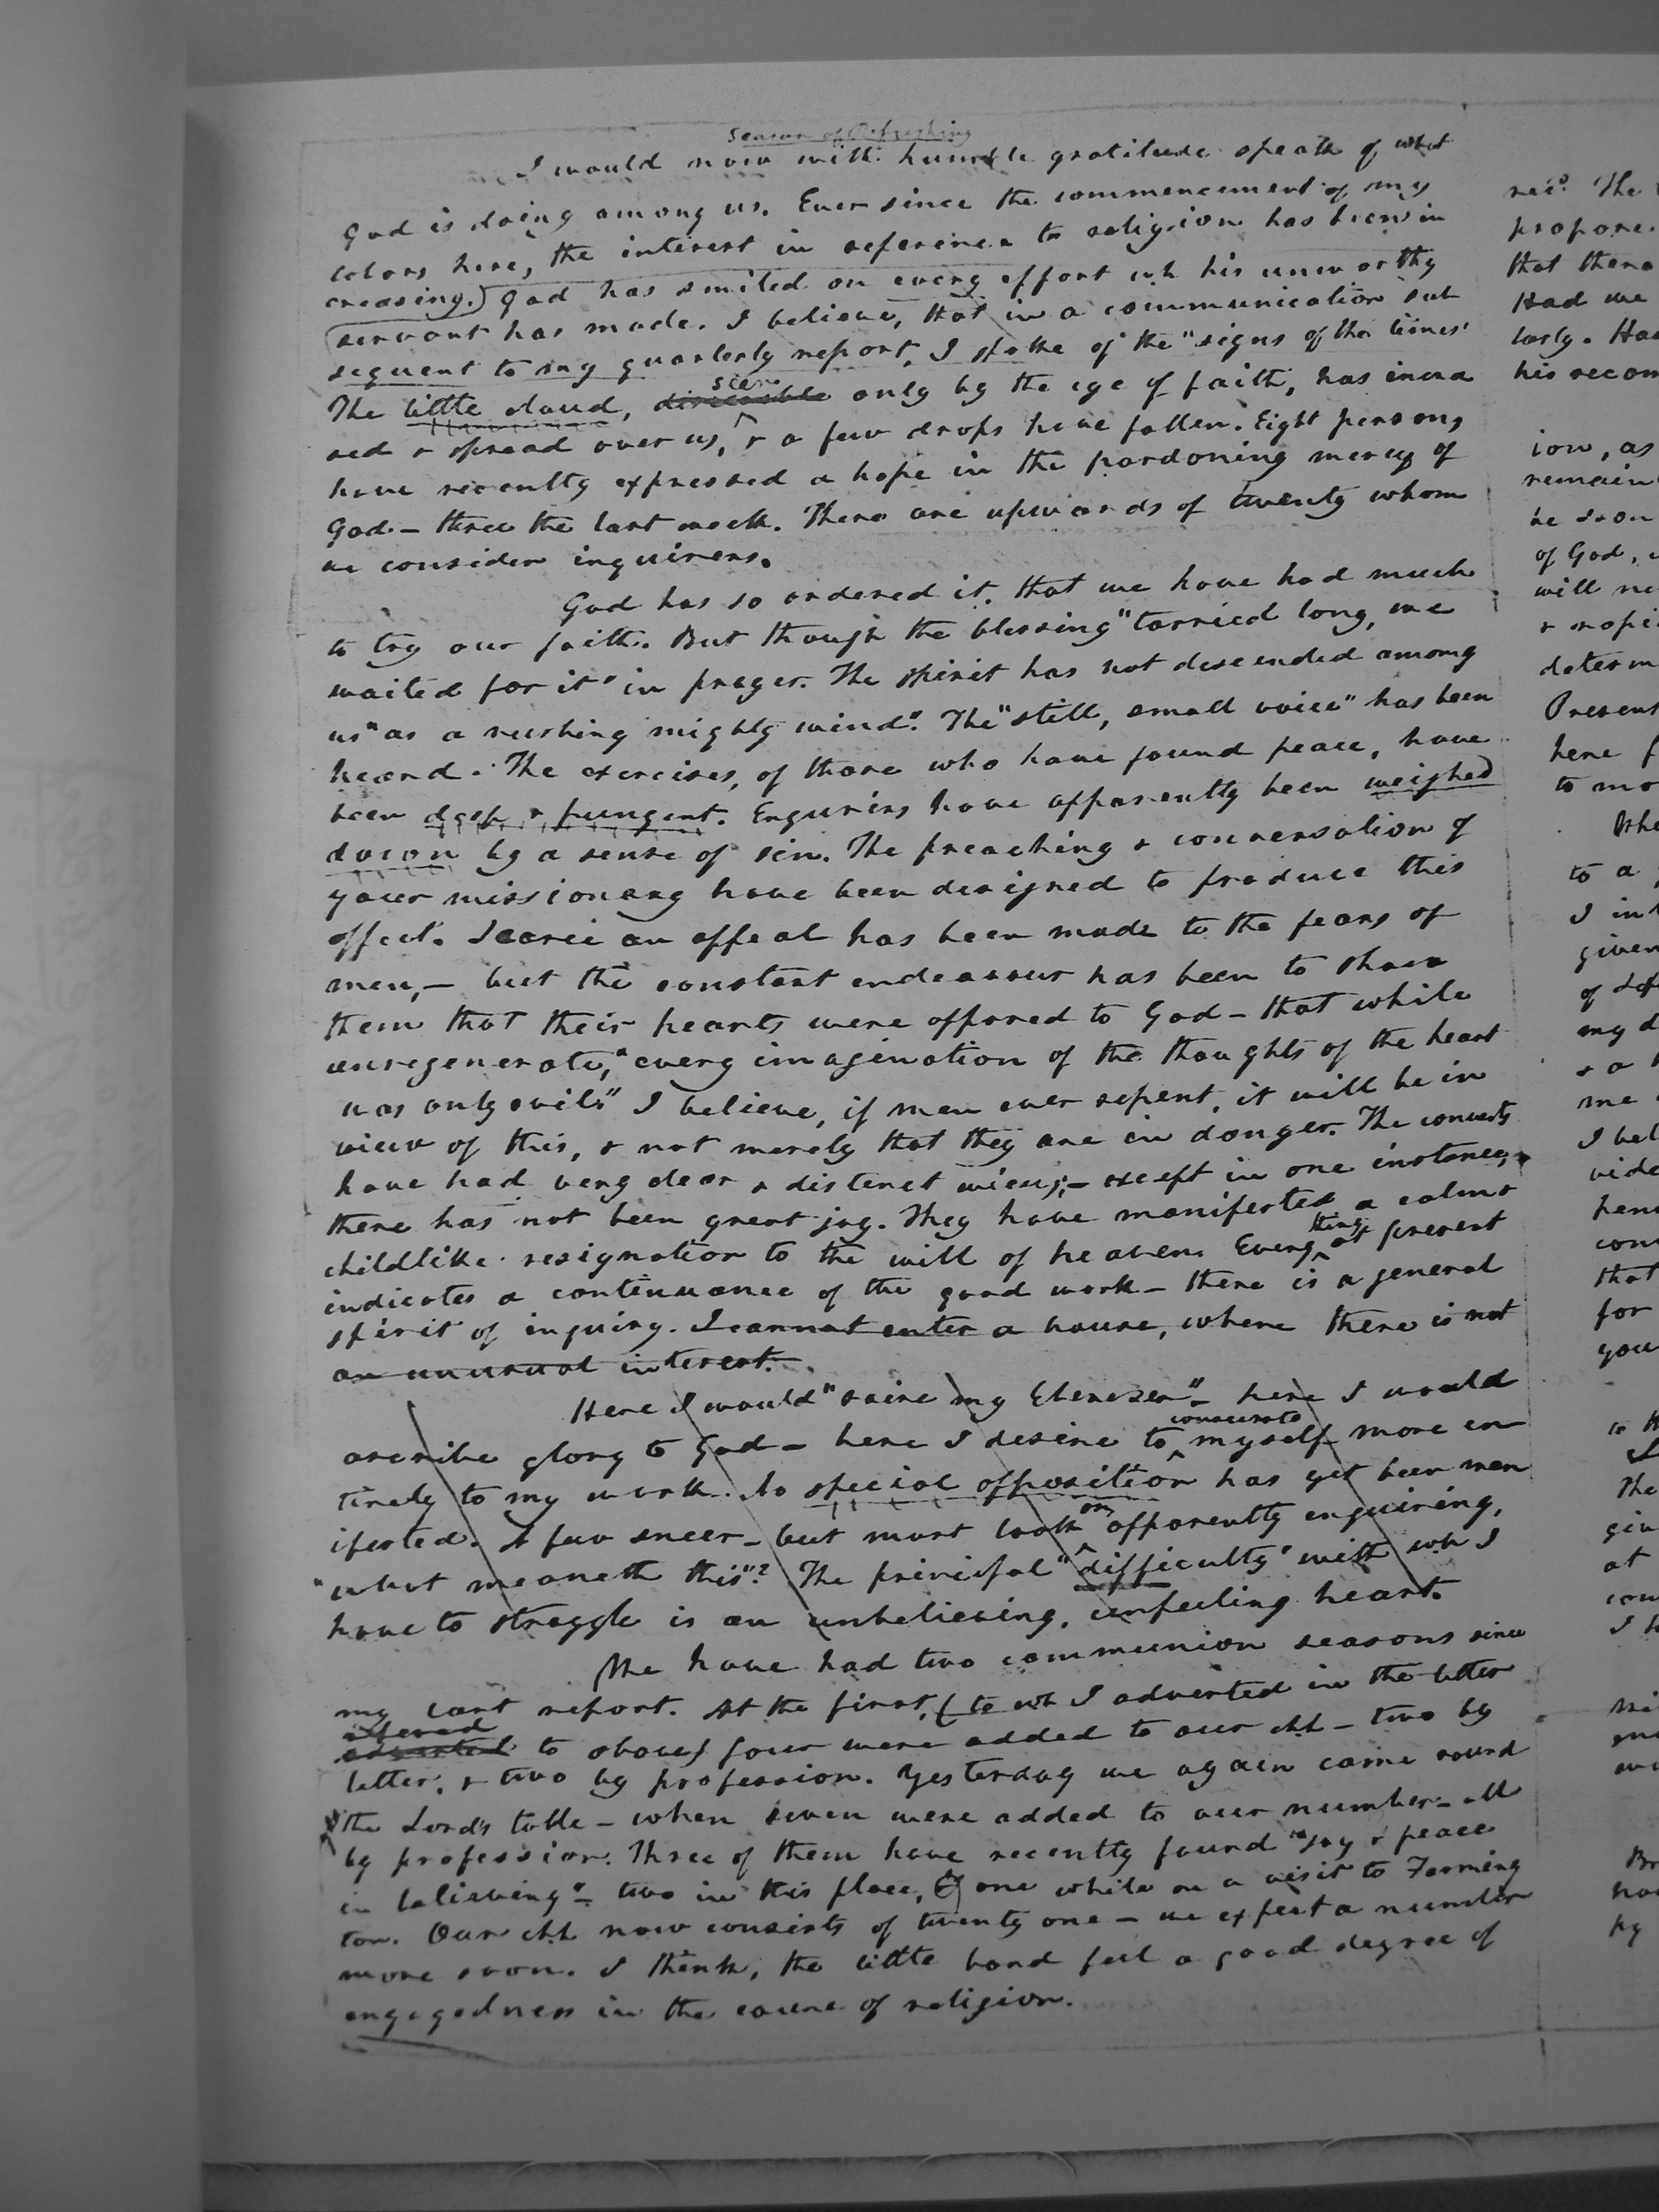 Season of Refreshing
I would now with humble gratitude speak of what
God is doing among us. Ever since the commencement of my
labors here, the interest in reference to religion has been in
creasing.) God has smiled on every effort wh his unworthy
servant has made. I believe, that in a communication sub
sequent to my quarterly report, I spoke of the "signs of the times"
seen
The little cloud, discernible only by the eye of faith, has increa
sed & spread over us, & a few drops have fallen. Eight persons
have recently expressed a hope in the pardoning mercy of
God – three the last week. There are upwards of twenty whom
we consider inquirers.
God has so ordered it, that we have had much
to try our faith. But though the blessing "tarried long, we
waited for it" in prayer. The spirit has not descended among
us "as a rushing mighty wind". The "still, small voice" has been
heard. The exercises, of those who have found peace, have
been deep & pungent. Enquirers have apparently been weighed
down by a sense of sin. The preaching & conversation of
your missionary have been designed to produce this
effect. Scarce an appeal has been made to the fears of
men, – but the constant endeavour has been to show
them that their hearts were opposed to God – that while
unregenerate, "every imagination of the thoughts of the heart
was only evil." I believe, if men ever repent, it will be in
view of this, & not merely that they are in danger. The converts
have had very clear & distinct views; – except in one instance,
there has not been great joy. They have manifested a calm &
thing
childlike resignation to the will of heaven. Every at present
indicates a continuance of the good work – there is a general
spirit of inquiry. I cannot enter a house, where there is not
an unusual interest.
Here I would "raise my Ebenezer" – here I would
consecrate
ascribe glory to God – here I desire to myself more en
tirely to my work. No special opposition has yet been man
on
ifested. A few sneer – but most look apparently enquiring,
"what meaneth this"? The principal "difficulty" with wh I
have to struggle is an unbelieving, unfeeling heart.
We have had two communion seasons since
my last report. At the first, (to wh I adverted in the letter
adverted to above) four were added to our chh – two by
letter, & two by profession. Yesterday we again came round
the Lord's table – when seven were added to our number – all
by profession. Three of them have recently found "joy & peace
in believing" – two in this place, & one while on a visit to Farming
ton. Our chh now consists of twenty one – we expect a number
more soon. I think, the little band feel a good degree of
engagedness in the cause of religion.
rec'd. The
propose
that there
Had we
larly. Had
his recom
ion, as
remain
be soon
of God,
will
determ
Presen
here
to mo
to a
I in
given
my d
me
I bel
vide
con
that
for
you
The
giv
at
I